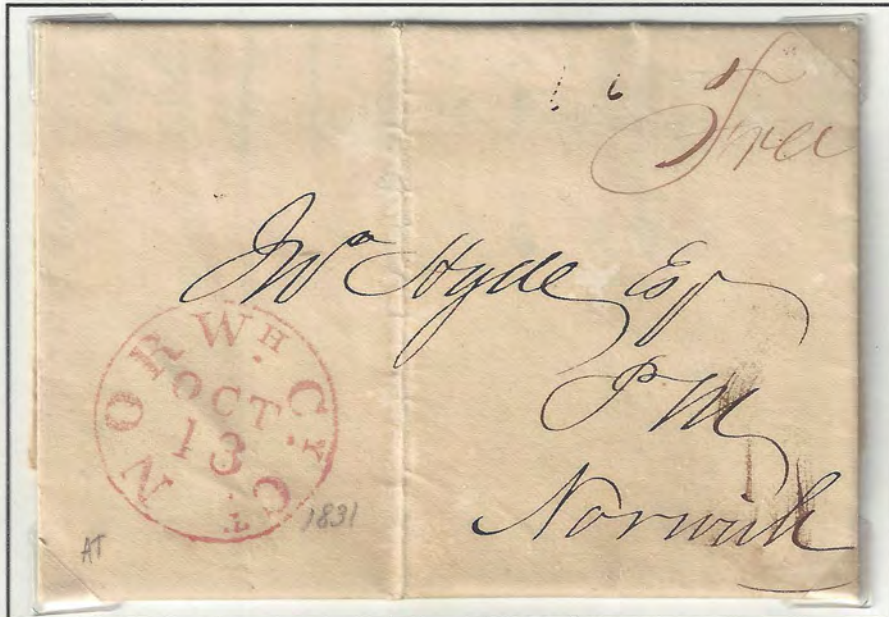 Free
Jnº Hyde Esq
P M
Norwich
NORWH. CY. CT.
OCT
13
1831
AT